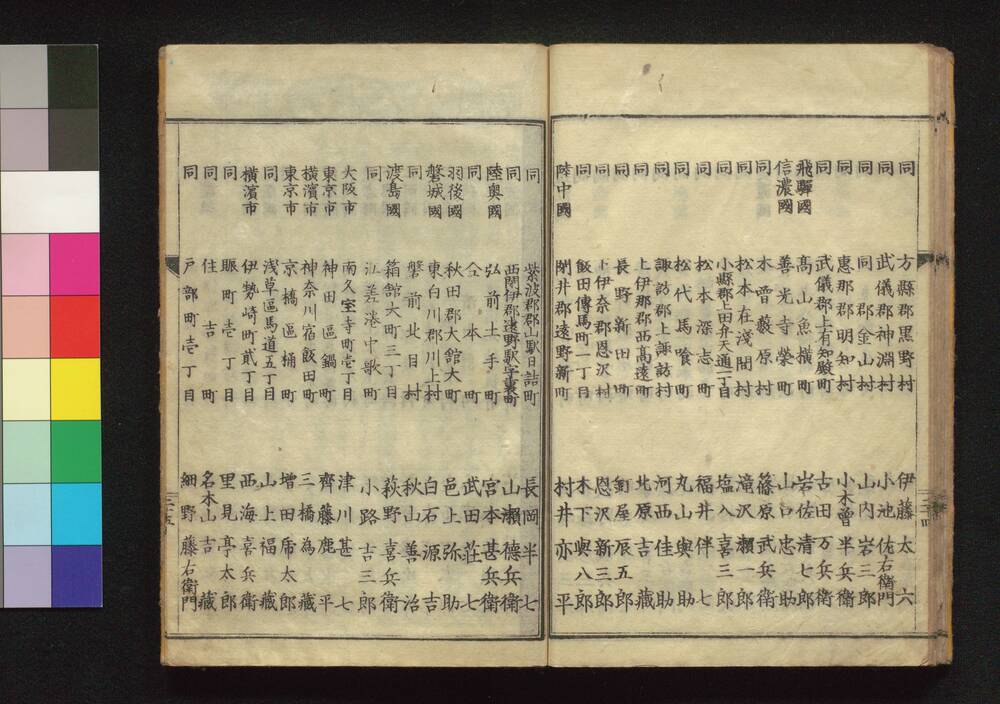 同 方縣郡黒野村 伊藤太六
同 武儀郡神淵村 小池佐右衛門
同 同郡金山村 山内岩三郎
同 惠那郡明知村 小木曽半兵衛
同 武儀郡上有知殿町 古田万兵衛
飛驒國 髙山魚横町 岩佐清七郎
信濃國 善光寺榮町 山口忠助
同 木曽藪原村 篠原武兵衛
同 松本在淺間村 滝沢瀬一郎
同 小縣郡上田弁天通一丁目 塩入喜三郎
同 松本深志町 福井伴七
同 松代馬喰町 丸山與助
同 諏訪郡上諏訪村 河西佳助
同 上伊那郡西髙遠町 北原吉藏
同 長野新田町 釘屋辰五郎
同 下伊奈郡恩沢村 恩沢新三郎
同 飯田傳馬町一丁目 木下與八郎
陸中國 閉井郡遠野新町 村井亦平
同 紫波郡郡山駅日詰町 長岡半七
同 西閉伊郡遠野駅字裏町 山瀬德兵衛
陸奥國 弘前土手町 宮本甚兵衛
同 仝本町 武田莊七
羽後國 秋田郡大館大町 邑上弥助
磐城國 東白川郡川上村 白石源吉
同 磐前北目村 秋山善治
渡島國 箱館大町三丁目 萩野喜兵衛
同 江差港中歌町 小路吉三郎
大阪市 南久宝寺町壱丁目 津川甚七
東京市 神田區鍋町 齊藤鹿平
橫濱市 神奈川宿飯田町 三橋為藏
東京市 京橋區桶町 増田乕太郎
同 浅草區馬道五丁目 山上福藏
橫濱市 伊勢崎町貮丁目 西海喜兵衛
同 賑町壱丁目 里見亭太郎
同 住吉町 名本山吉藏
同 戸部町壱丁目 細野藤右衛門
三ノ五